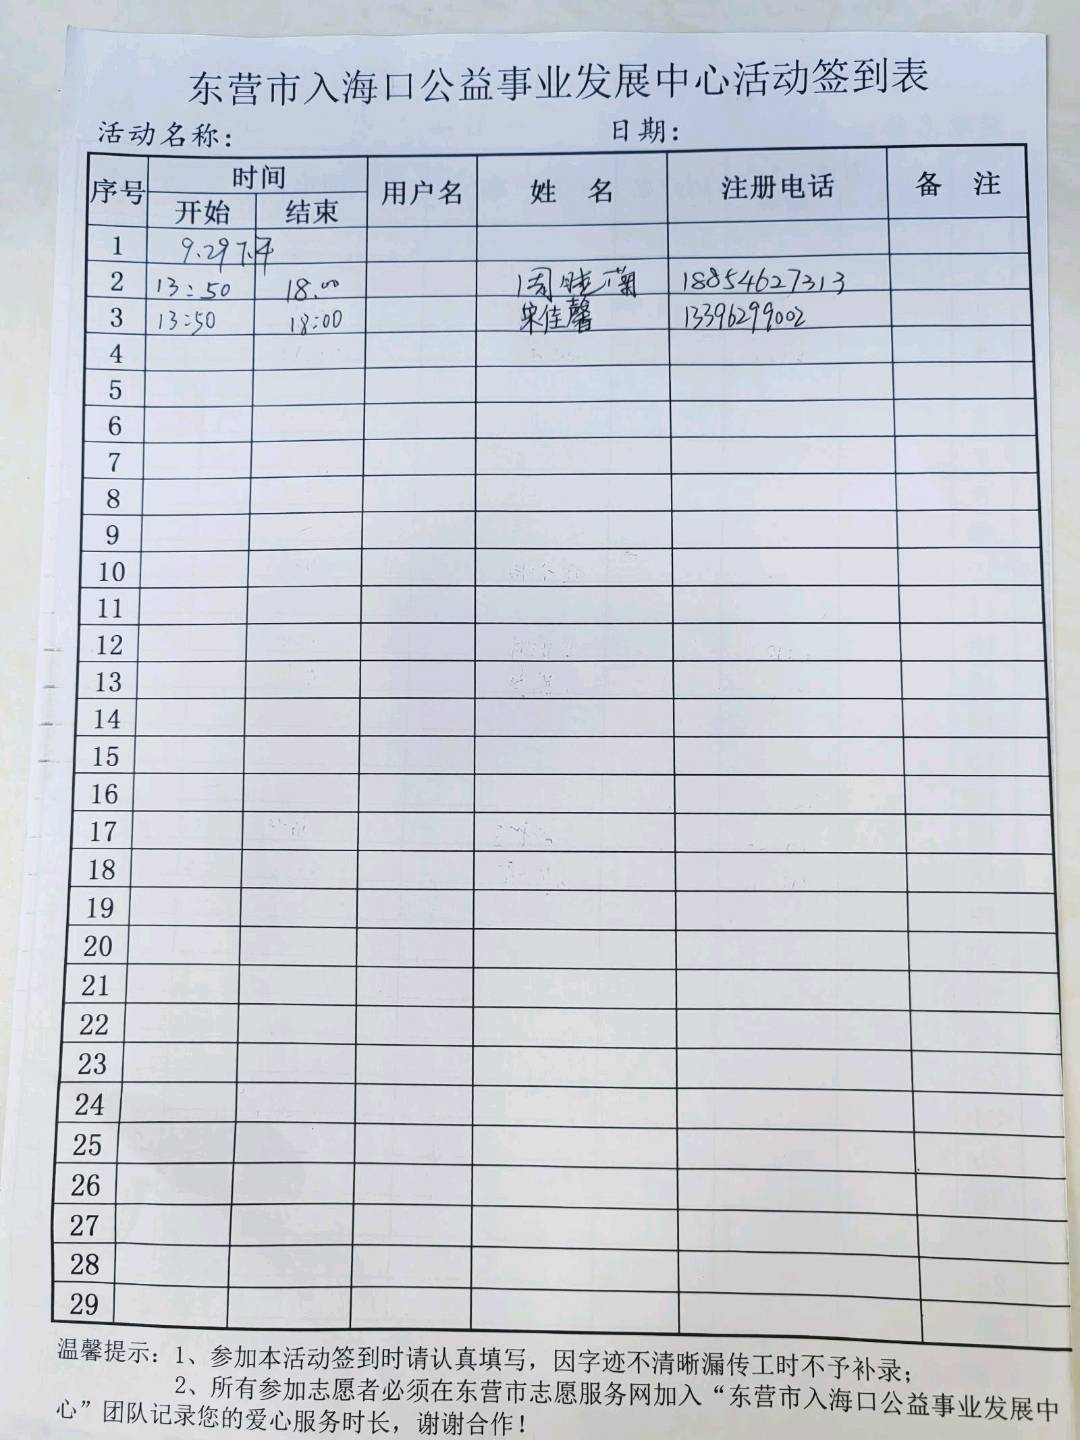 东营市入海口公益事业发展中心活动签到表
活动名称: 日期:
序号 时间 用户名 姓 名 注册电话 备 注
开始 结束
1 9.29下午
2 13:50 18:00 周晓菊 18854627313
3 13:50 18:00 宋佳馨 13396299002
4
5
6
7
8
9
10
11
12
13
14
15
16
17
18
19
20
21
22
23
24
25
26
27
28
29
温馨提示:1、参加本活动签到时请认真填写，因字迹不清晰漏传工时不予补录;
2、所有参加志愿者必须在东营市志愿服务网加入“东营市入海口公益事业发展中
心”团队记录您的爱心服务时长，谢谢合作!